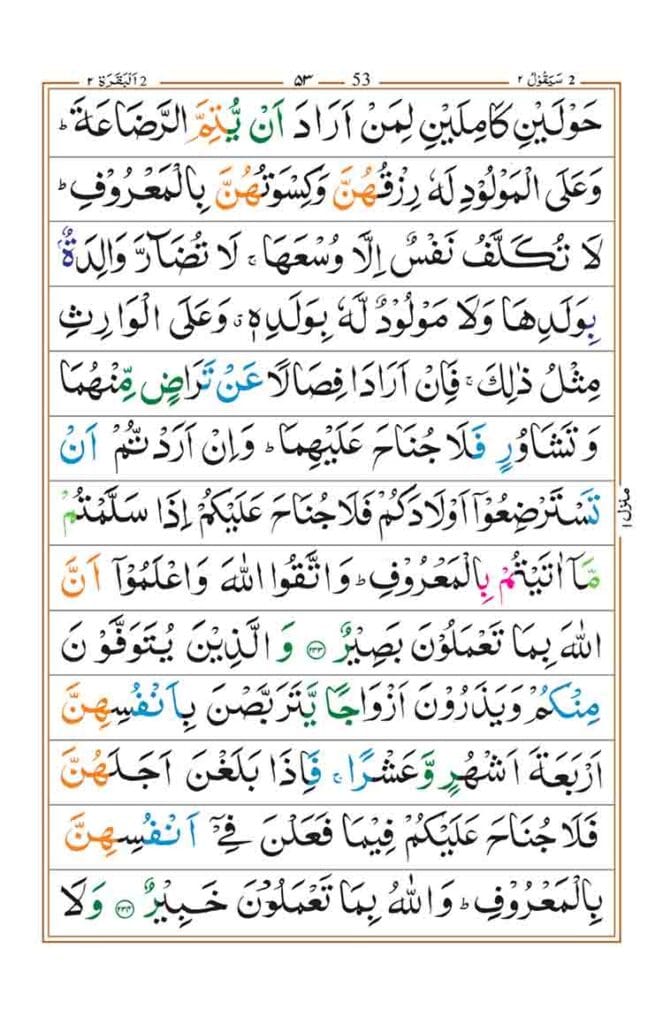 سَيَقُوۡلُ ۲ 2 53 ۵۳ اَلۡبَقَرَة ۲ 2
حَوۡلَيۡنِ كَامِلَيۡنِ لِمَنۡ اَرَادَ اَنۡ يُّتِمَّ الرَّضَاعَةَ ؕ
وَعَلَى الۡمَوۡلُوۡدِ لَهٗ رِزۡقُهُنَّ وَكِسۡوَتُهُنَّ بِالۡمَعۡرُوۡفِ ؕ
لَا تُكَلَّفُ نَفۡسٌ اِلَّا وُسۡعَهَا ۚ لَا تُضَآرَّ وَالِدَةٌۢ
بِوَلَدِهَا وَلَا مَوۡلُوۡدٌ لَّهٗ بِوَلَدِهٖ ۗ وَعَلَى الۡوَارِثِ
مِثۡلُ ذٰلِكَ ۚ فَاِنۡ اَرَادَا فِصَالًا عَنۡ تَرَاضٍ مِّنۡهُمَا
وَتَشَاوُرٍ فَلَا جُنَاحَ عَلَيۡهِمَا ؕ وَاِنۡ اَرَدْتُّمۡ اَنۡ
تَسۡتَرۡضِعُوۡٓا اَوۡلَادَكُمۡ فَلَا جُنَاحَ عَلَيۡكُمۡ اِذَا سَلَّمۡتُمۡ
مَّآ اٰتَيۡتُمۡ بِالۡمَعۡرُوۡفِ ؕ وَاتَّقُوا اللّٰهَ وَاعۡلَمُوۡٓا اَنَّ
اللّٰهَ بِمَا تَعۡمَلُوۡنَ بَصِيۡرٌ ﴿۲۳۳﴾ وَالَّذِيۡنَ يُتَوَفَّوۡنَ
مِنۡكُمۡ وَيَذَرُوۡنَ اَزۡوَاجًا يَّتَرَبَّصۡنَ بِاَنۡفُسِهِنَّ
اَرۡبَعَةَ اَشۡهُرٍ وَّعَشۡرًا ۚ فَاِذَا بَلَغۡنَ اَجَلَهُنَّ
فَلَا جُنَاحَ عَلَيۡكُمۡ فِيۡمَا فَعَلۡنَ فِىۡٓ اَنۡفُسِهِنَّ
بِالۡمَعۡرُوۡفِ ؕ وَاللّٰهُ بِمَا تَعۡمَلُوۡنَ خَبِيۡرٌ ﴿۲۳۴﴾ وَلَا
منزل ۱